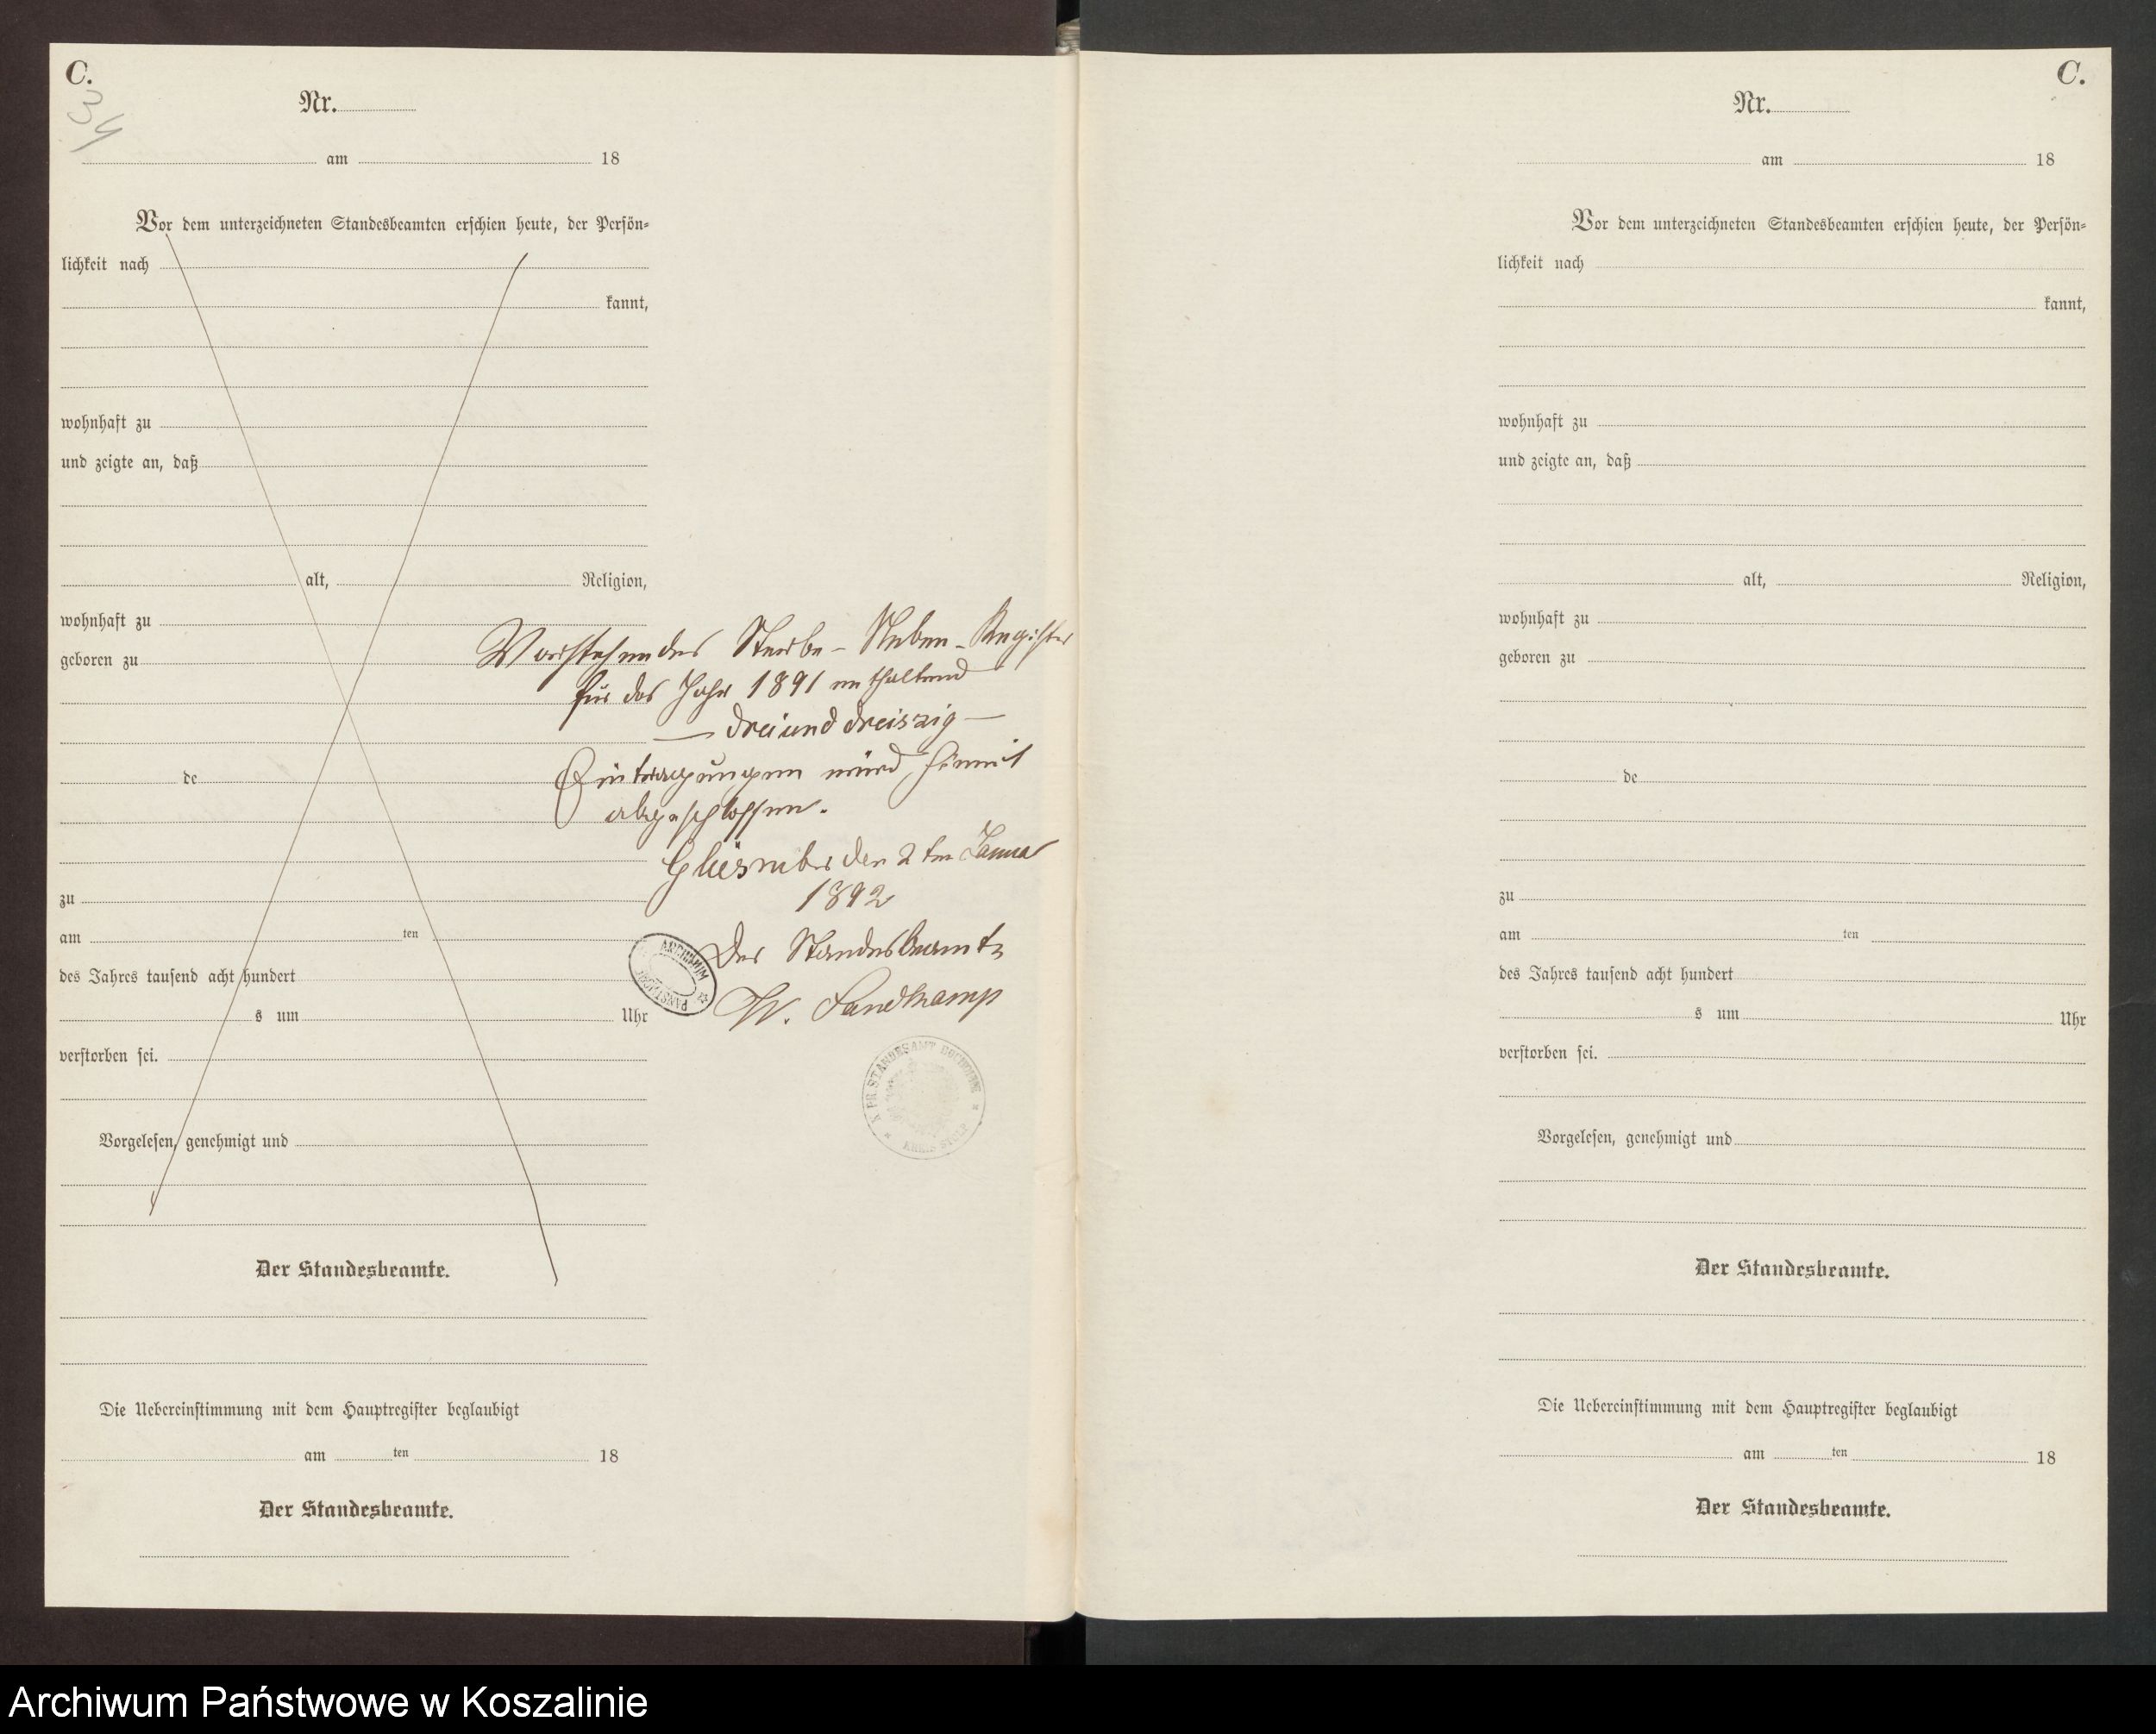 C.
34
Nr.
am 18
Vor dem unterzeichneten Standesbeamten erschien heute, der Persön-
lichkeit nach
kannt,
wohnhaft zu
und zeigte an, daß
alt, Religion,
wohnhaft zu
geboren zu
de
zu
am ten
des Jahres tausend acht hundert
s um Uhr
verstorben sei.
Vorgelesen, genehmigt und
Der Standesbeamte.
Die Uebereinstimmung mit dem Hauptregister beglaubigt
am ten 18
Der Standesbeamte.
Vorstehendes Sterbe-Neben-Register
für das Jahr 1891 enthaltend
— dreiunddreiszig —
Eintragungen wird hiermit
abgeschlossen.
den 2ten Januar
1892
Der Standesbeamte
W. Sandkamp
ARCHIWUM
PAŃSTWOWE
K. PR. STANDESAMT
KREIS STOLP
C.
Nr.
am 18
Vor dem unterzeichneten Standesbeamten erschien heute, der Persön-
lichkeit nach
kannt,
wohnhaft zu
und zeigte an, daß
alt, Religion,
wohnhaft zu
geboren zu
de
zu
am ten
des Jahres tausend acht hundert
s um Uhr
verstorben sei.
Vorgelesen, genehmigt und
Der Standesbeamte.
Die Uebereinstimmung mit dem Hauptregister beglaubigt
am ten 18
Der Standesbeamte.
Archiwum Państwowe w Koszalinie